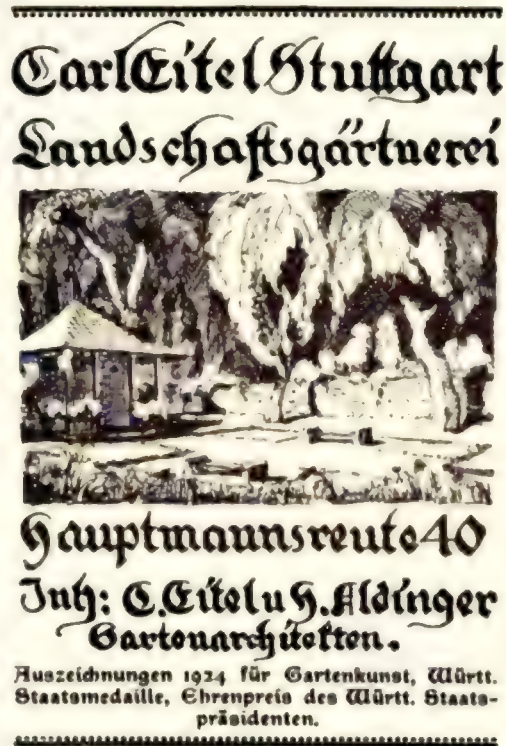 Carl Eitel Stuttgart
Landschaftsgärtnerei
Hauptmannsreute 40
Inh: C. Eitel u H. Aldinger
Gartenarchitekten.
Auszeichnungen 1924 für Gartenkunst, Württ.
Staatsmedaille, Ehrenpreis des Württ. Staats-
präsidenten.